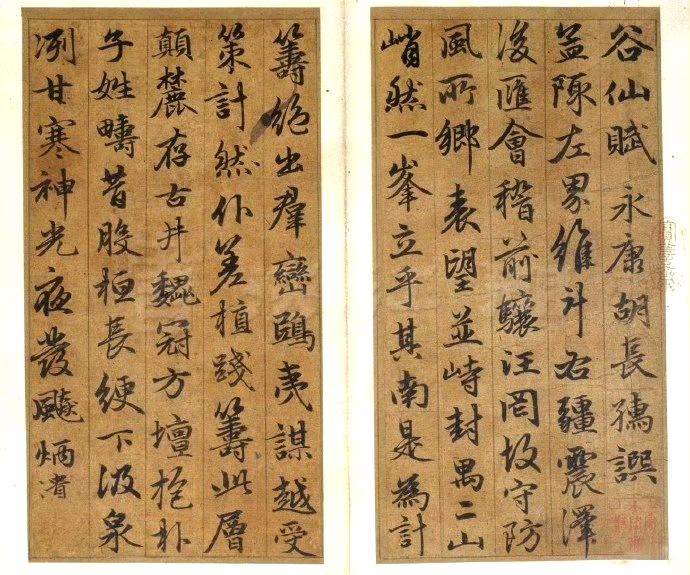 谷仙賦永康胡長孺譔
孟陬左界維斗右疆震澤
後匯會稽前驤汪罔故守防
風所鄉表望並峙封禺二山
峭然一峯立乎其南是為計
籌絶出羣巒鴟夷謀越受
策計然仆差植踐籌此層
顛麓存古井魏冠方壇抱朴
子姓疇昔長綆下汲泉
冽甘寒神光夜發飈炳潰